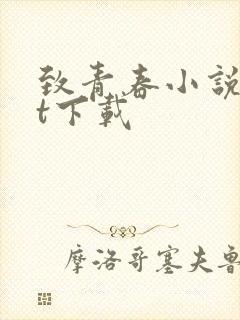 致青春小說
t下載
摩洛哥塞夫魯